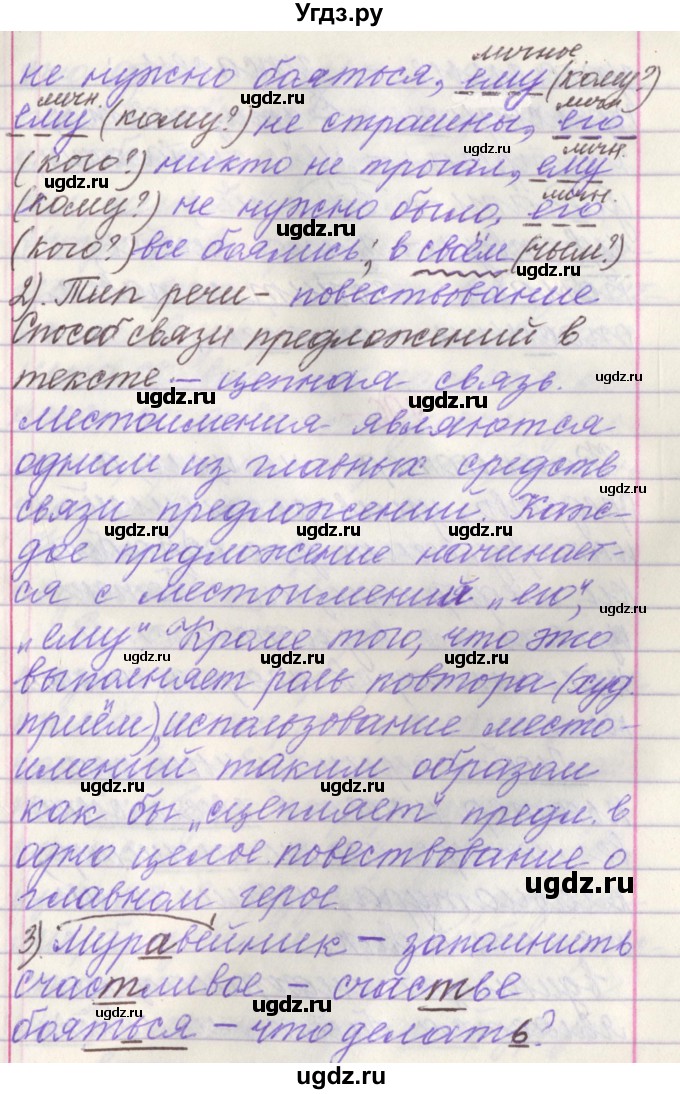 Угдз.ру
личное
не нужно бояться, ему (кому?)
личн. личн.
ему (кому?) не страшны, его
личн.
(кого?) никто не трогал, ему
личн.
(кому?) не нужно было, его
(кого?) все боялись; в своём (чьём?)
2). Тип речи – повествование
Способ связи предложений в
тексте – цепная связь.
Местоимения являются
одним из главных средств
связи предложений. Каж-
дое предложение начинает-
ся с местоимений „его",
„ему" Кроме того, что это
выполняет роль повтора (худ.
приём), использование место-
имений таким образом
как бы „сцепляет" предл. в
одно целое повествование о
главном герое.
3) Муравейник – запомнить
счастливое – счастье
бояться – что делать?
ugdz.ru